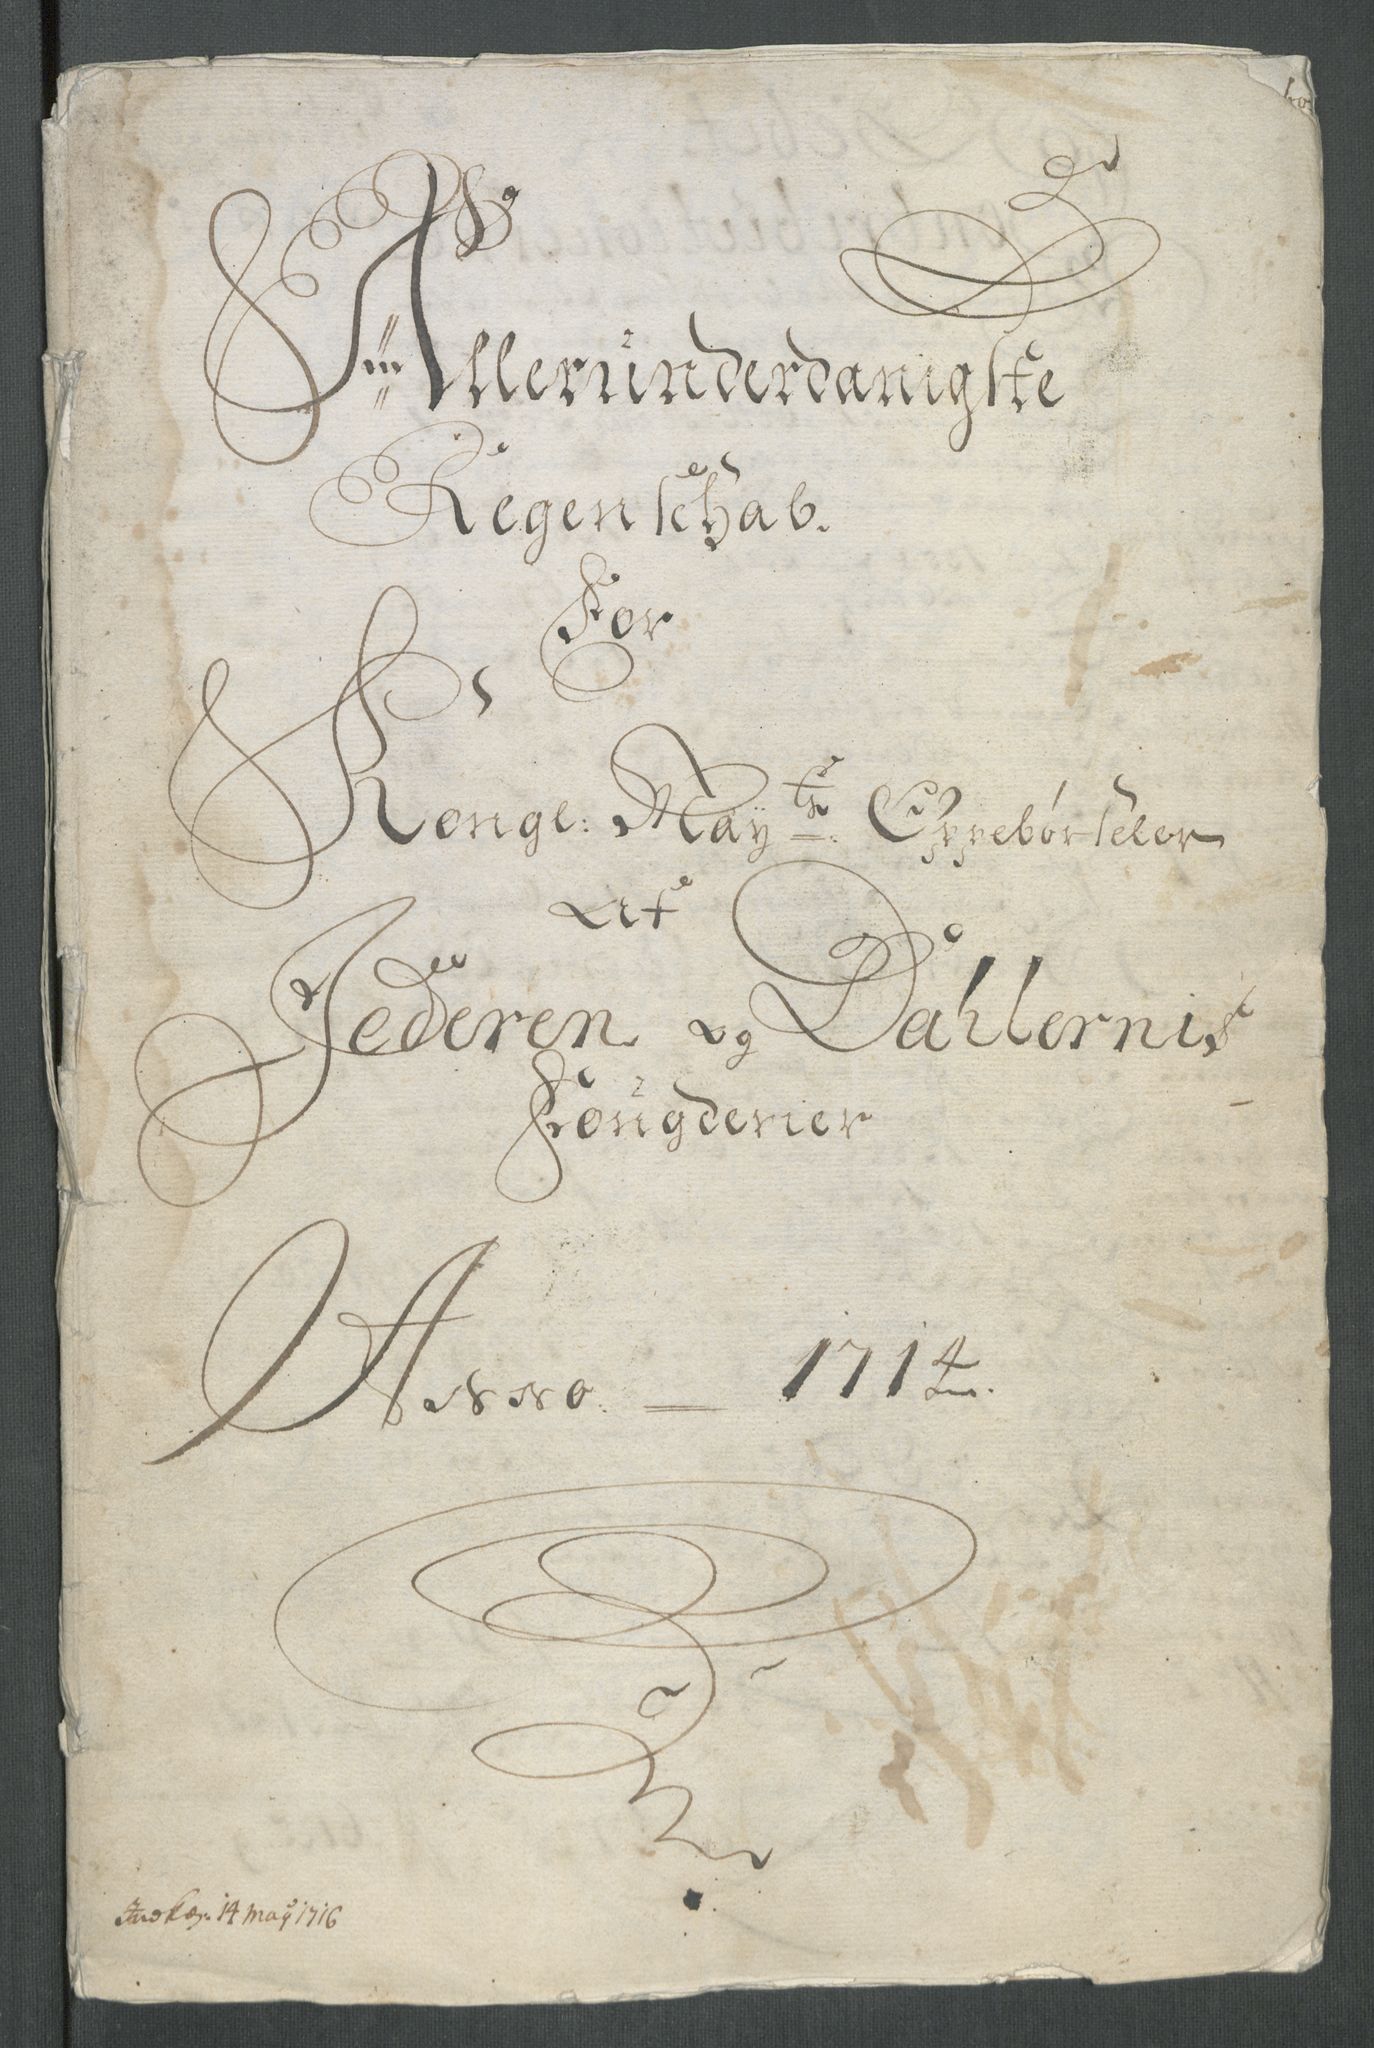 Allerunderdanigste
Regenschab.
For
Kongl: May.ts Oppebørseler
Udi
Jederen og Dahlernis
Fougderier
Anno 1714
14 may 1716